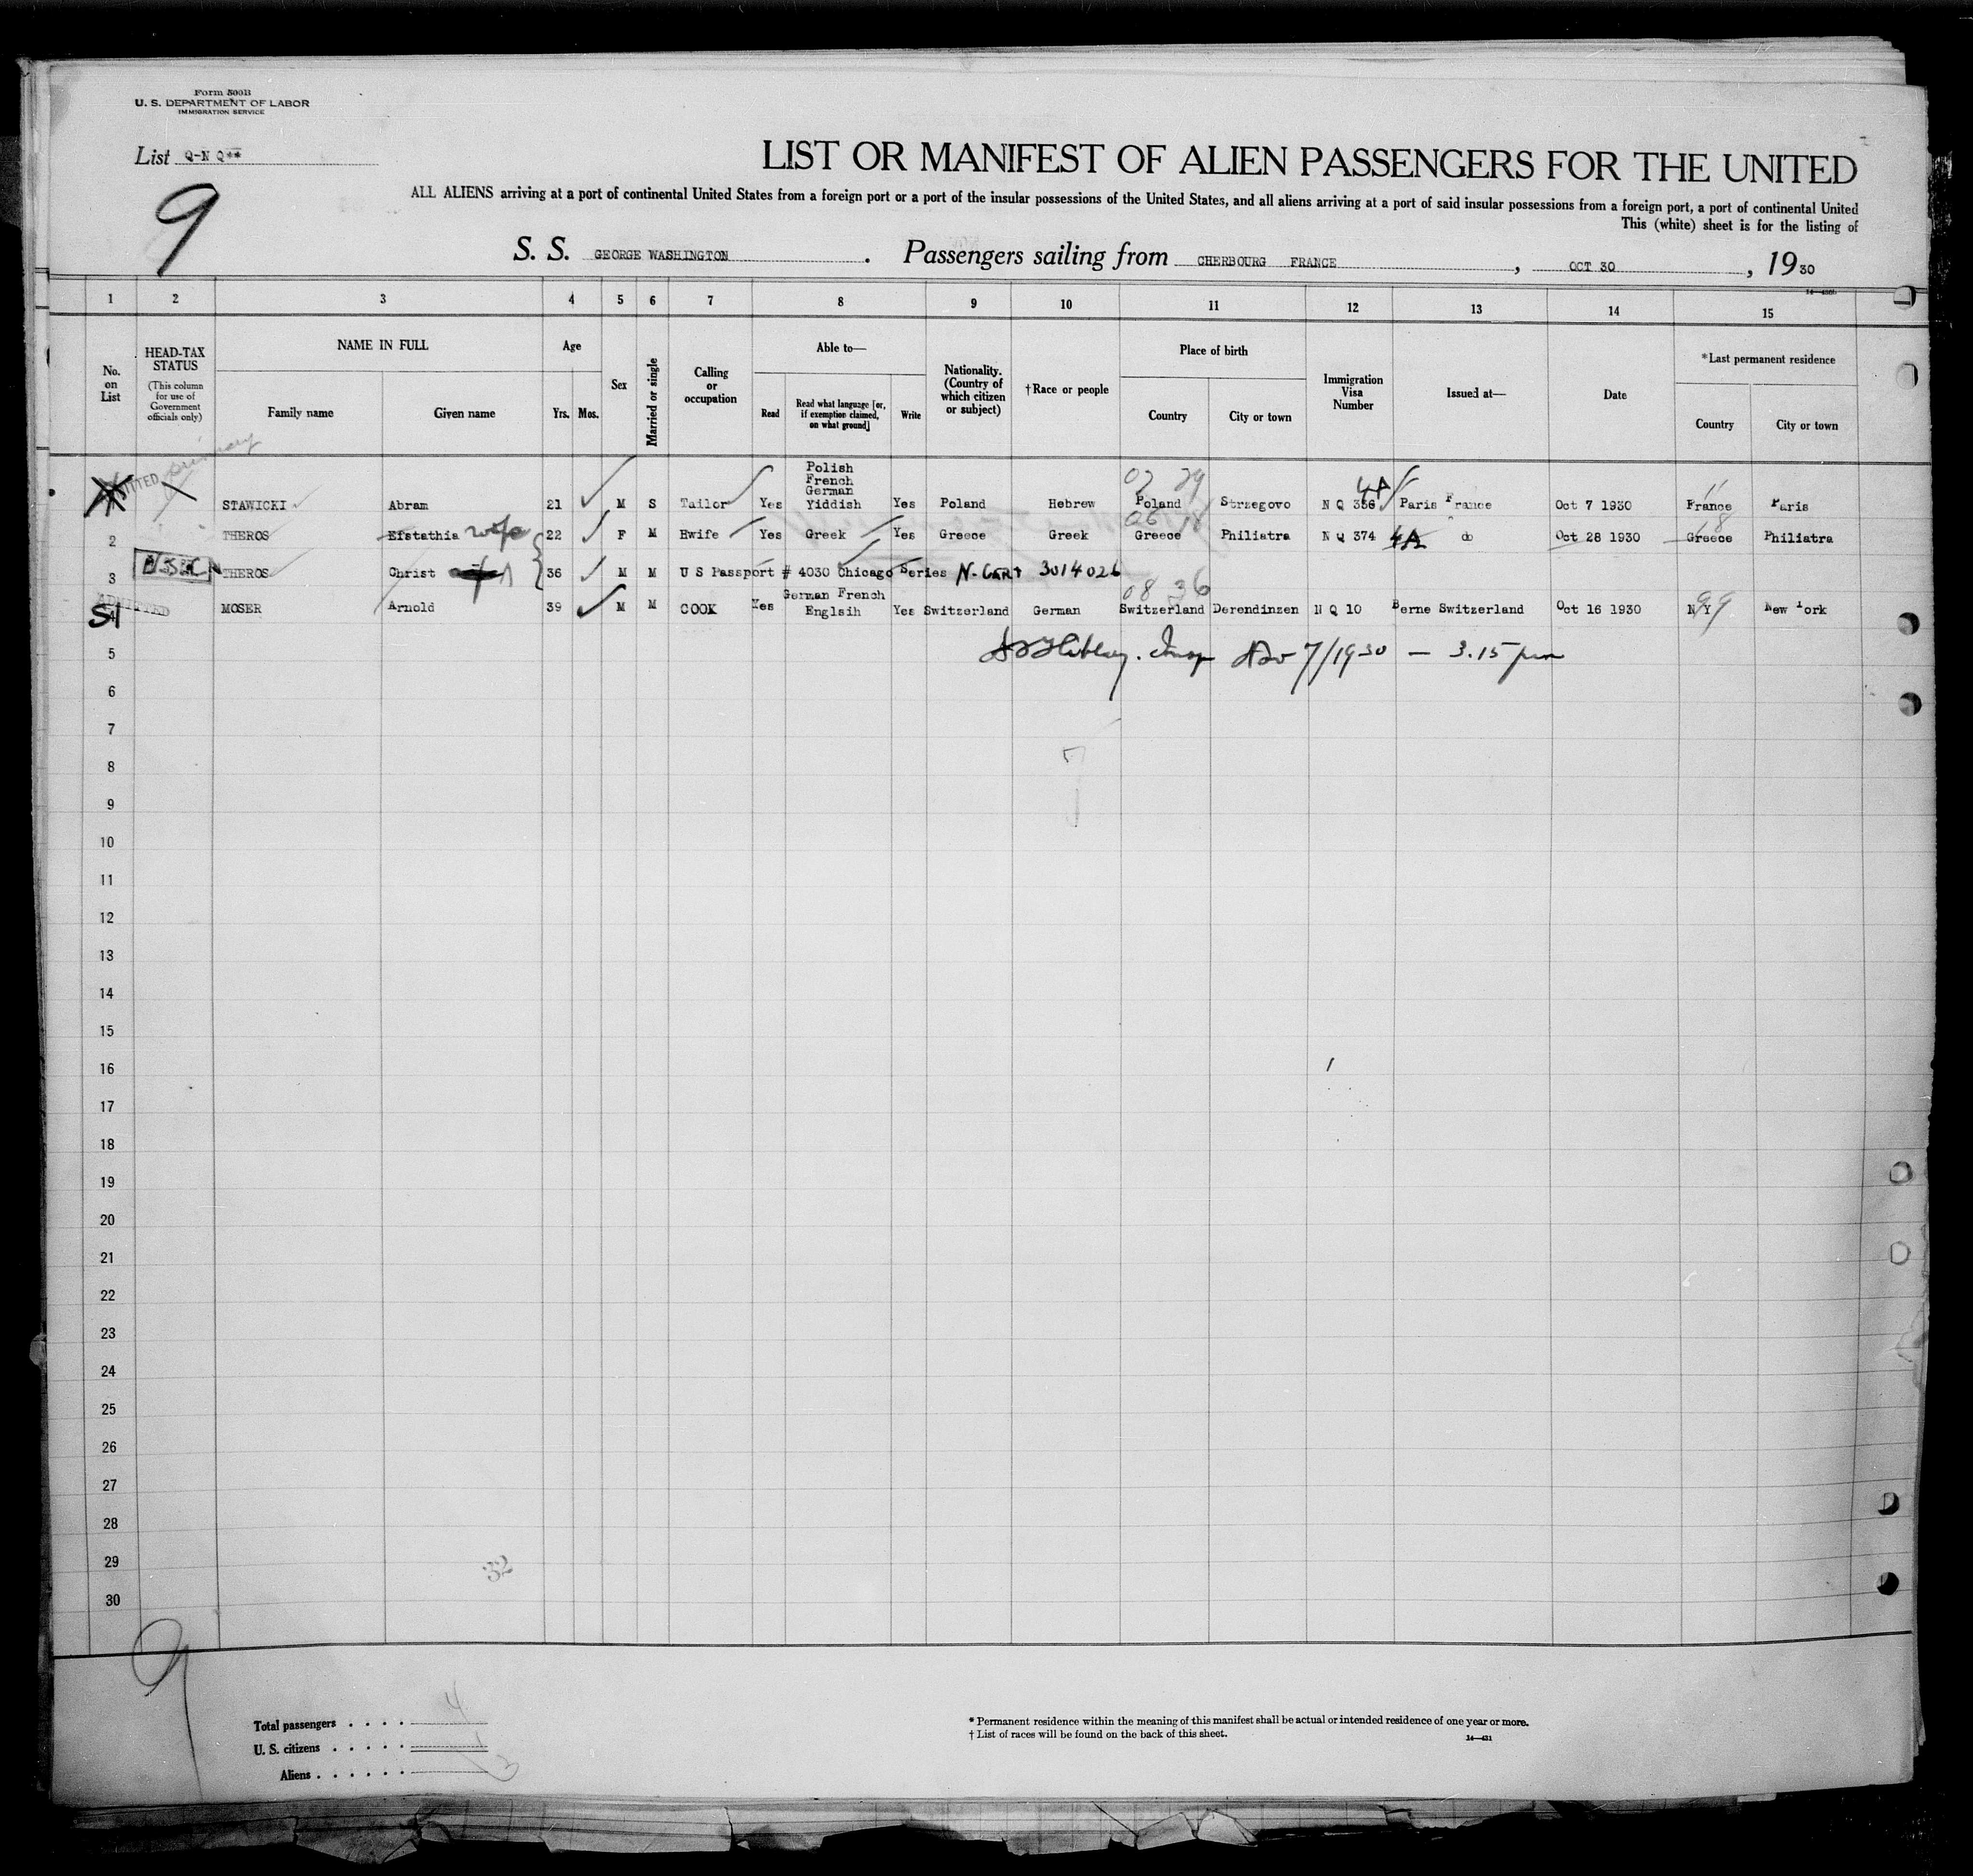 Form 500B
U. S. DEPARTMENT OF LABOR
IMMIGRATION SERVICE
List Q-N Q**
9
LIST OR MANIFEST OF ALIEN PASSENGERS FOR THE UNITED
ALL ALIENS arriving at a port of continental United States from a foreign port or a port of the insular possessions of the United States, and all aliens arriving at a port of said insular possessions from a foreign port, a port of continental United
This (white) sheet is for the listing of
S. S. GEORGE WASHINGTON . Passengers sailing from CHERBOURG FRANCE , OCT 30 , 1930
1 2 3 4 5 6 7 8 9 10 11 12 13 14 15
No. on List
HEAD-TAX STATUS
(This column for use of Government officials only)
NAME IN FULL
Family name Given name
Age
Yrs. Mos.
Sex
Married or single
Calling or occupation
Able to—
Read
Read what language [or, if exemption claimed, on what ground]
Write
Nationality. (Country of which citizen or subject)
†Race or people
Place of birth
Country City or town
Immigration Visa Number
Issued at—
Date
*Last permanent residence
Country City or town
ADMITTED
STAWICKI Abram 21 M S Tailor Yes Polish French German Yiddish Yes Poland Hebrew Poland Strzegovo N Q 356 4A Paris France Oct 7 1930 France Paris
2 THEROS Efstathia wife 22 F M Hwife Yes Greek Yes Greece Greek Greece Philiatra N Q 374 4A do Oct 28 1930 Greece Philiatra
3 THEROS Christ 36 M M U S Passport # 4030 Chicago Series N. Cert 3014026
ADMITTED
SI MOSER Arnold 39 M M COOK Yes German French Englsih Yes Switzerland German 08 36 Switzerland Derendinzen N Q 10 Berne Switzerland Oct 16 1930 N Y 99 New York
5 Nov 7/1930 — 3.15 pm
6
7
8
9
10
11
12
13
14
15
16
17
18
19
20
21
22
23
24
25
26
27
28
29
30
32
9
Total passengers . . . . 4
U. S. citizens . . . . . 1
Aliens . . . . . . 3
* Permanent residence within the meaning of this manifest shall be actual or intended residence of one year or more.
† List of races will be found on the back of this sheet.
14—431